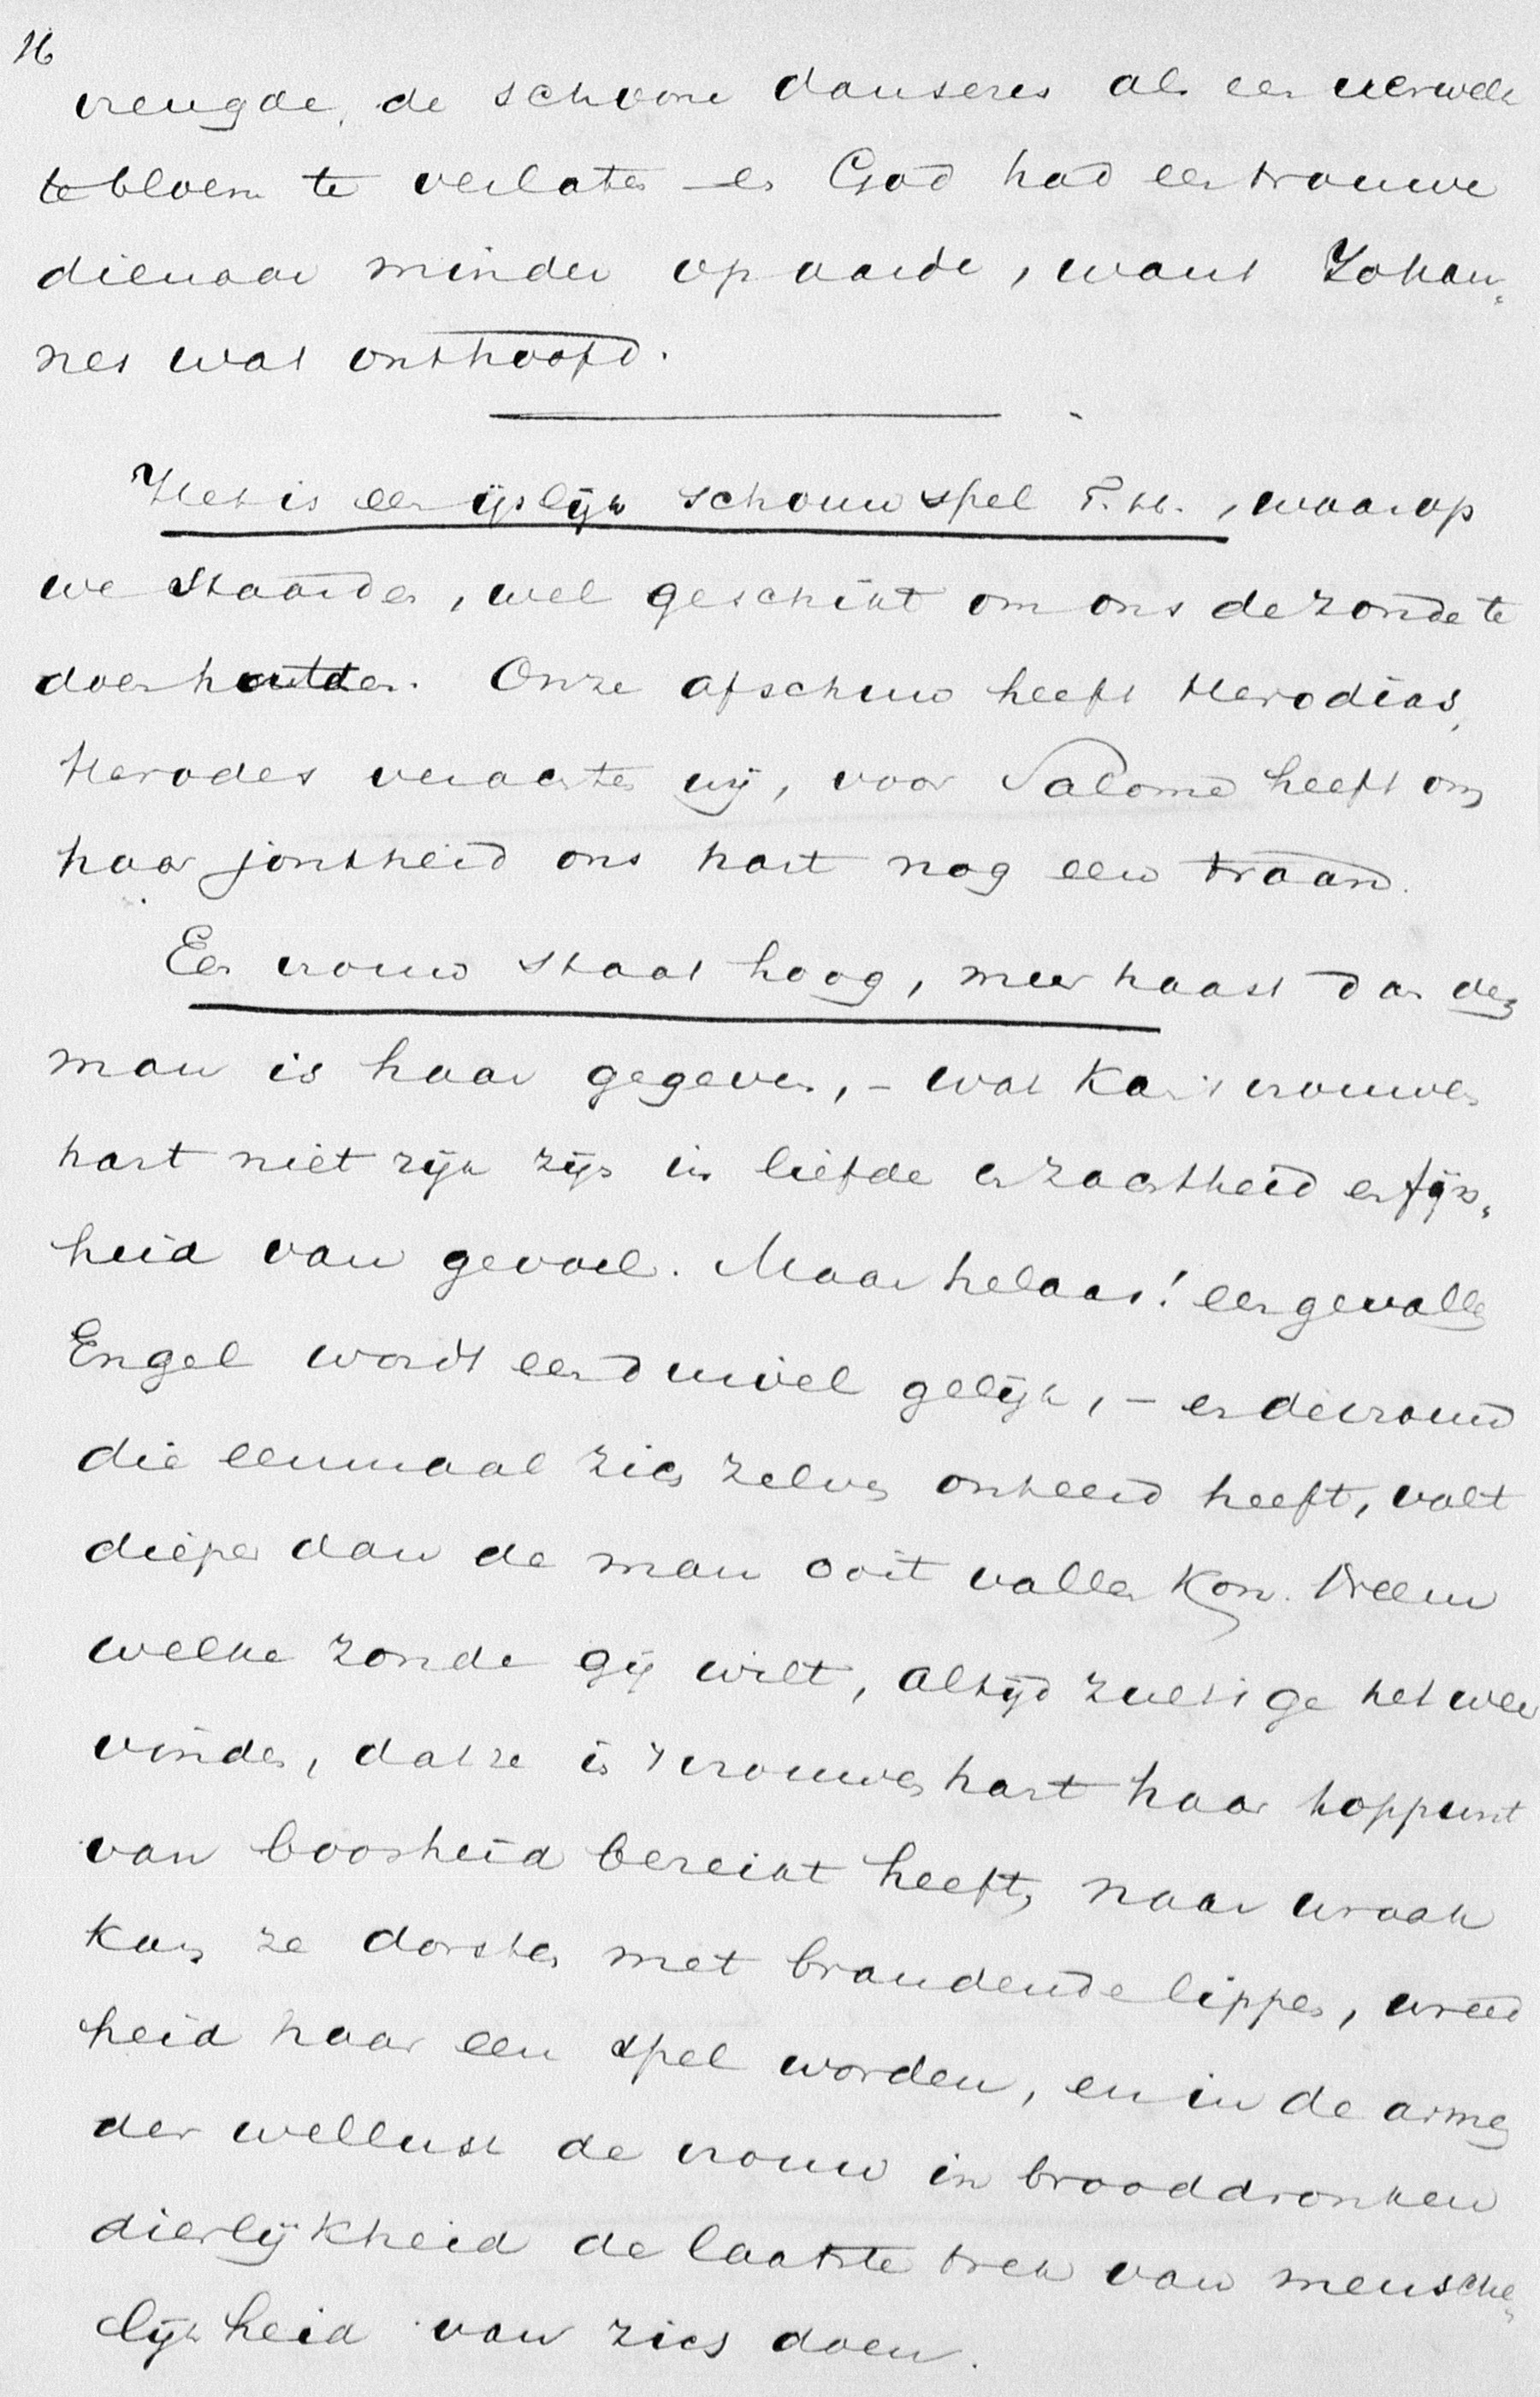 16
vreugde, de schoone danseres als een verwelk
te bloem te verlaten – en God had een trouwe
dienaar minder op aarde, want Johan„
nes was onthoofd.
Het is een ijslijk schouwspel T. H., waarop
we staarden, wel geschikt om ons de zonde te
doen haten. Onze afschuw heeft Herodias,
Herodes verachten wij, voor Salome heeft om
haar jonkheid ons hart nog een traan.
Een vrouw staat hoog, meer haast dan den
man is haar gegeven, – wat kan 't vrouwen
hart niet rijk zijn in liefde en zachtheid en fijn„
heid van gevoel. Maar helaas! een gevallen
Engel wordt een duivel gelijk, – en de vrouw
die eenmaal zich zelven onteerd heeft, valt
dieper dan de man ooit vallen kon. Neem
welke zonde gij wilt, altijd zult ge het weer
vinden, dat ze in 't vrouwenhart haar toppunt
van boosheid bereikt heeft, naar wraak
kan ze dorsten met brandende lippen, wreed
heid haar een spel worden, en in de armen
der wellust de vrouw in brooddronken
dierlijkheid de laatste trek van mensche„
lijkheid van zich doen.